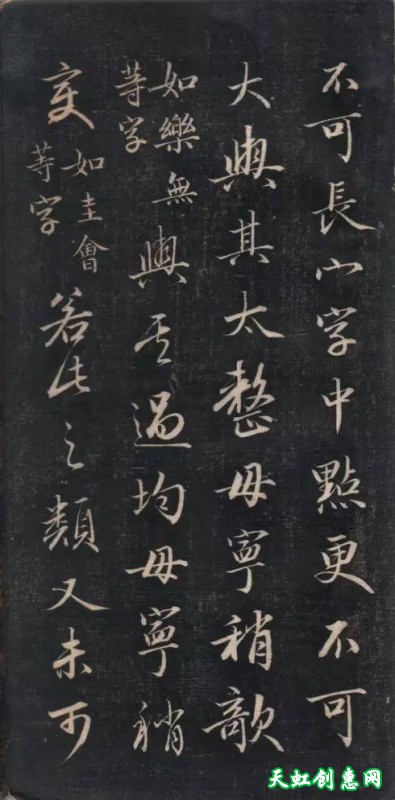 不可長心字中點更不可
大與其太整毋寧稍欹
如樂無
等字
與其過均毋寧稍
変
如圭會
等字
若此之類又未可
天虹创惠网